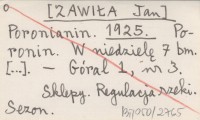 [ZAWIŁA Jan]
Poronianin. 1925. Po-
ronin. W niedzielę 7 bm.
[...]. – Góral 1, nr 3.
Sklepy. Regulacja rzeki.
Sezon.
Bj 1950/2765